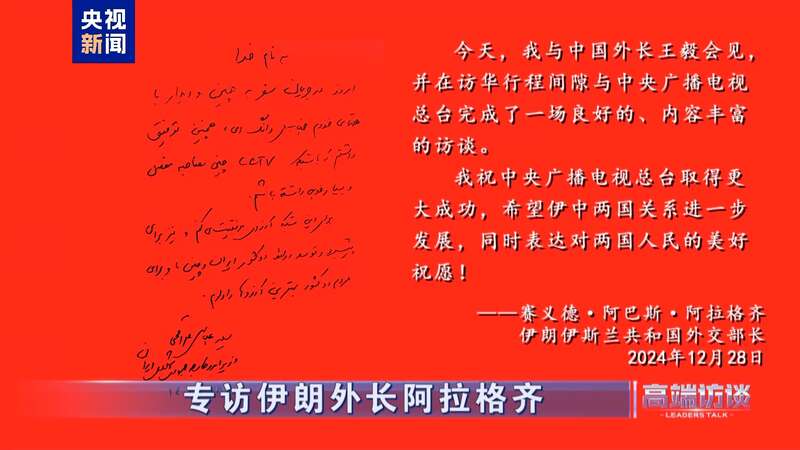 央视
新闻
به نام خدا
امروز در جریان سفر به چین و دیدار با
داشتم تا با شبکه CCTV چینی مصاحبه مفصل
و بسیار خوبی داشته باشم.
برای این شبکه آرزوی موفقیت می‌کنم و نیز برای
مردم دو کشور بهترین آرزوها را دارم.
سید عباس عراقچی
今天，我与中国外长王毅会见，
并在访华行程间隙与中央广播电视
总台完成了一场良好的、内容丰富
的访谈。
我祝中央广播电视总台取得更
大成功，希望伊中两国关系进一步
发展，同时表达对两国人民的美好
祝愿！
——赛义德·阿巴斯·阿拉格齐
伊朗伊斯兰共和国外交部长
2024年12月28日
专访伊朗外长阿拉格齐
高端访谈
LEADERS TALK